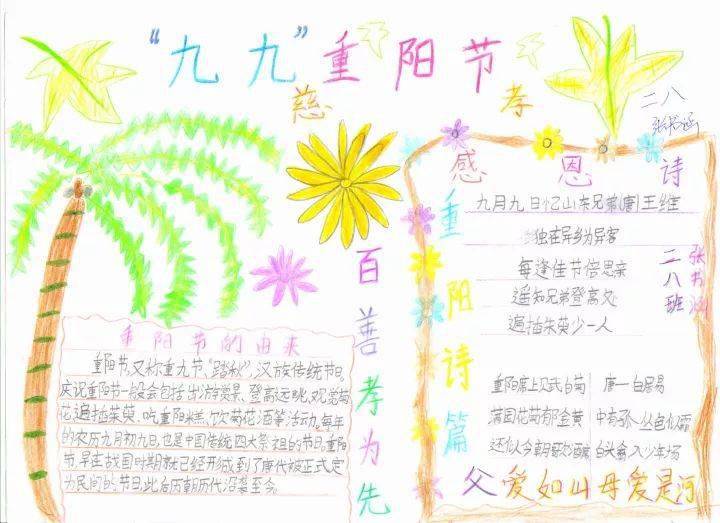 “九九”重阳节
慈
孝
二八
张书涵
感恩诗
重阳诗篇
九月九日忆山东兄弟(唐)王维
独在异乡为异客
每逢佳节倍思亲
遥知兄弟登高处
遍插朱萸少一人
二八班
张书涵
重阳席上赋白菊 唐一白居易
满园花菊郁金黄 中有孤丛色似霜
还似今朝歌酒席 白头翁入少年场
父爱如山母爱是河
百善孝为先
重阳节的由来
重阳节,又称重九节、“踏秋”,汉族传统节日。
庆祝重阳节一般会包括出游赏景、登高远眺、观赏菊
花、遍插茱萸、吃重阳糕、饮菊花酒等活动,每年
的农历九月初九日,也是中国传统四大祭祖的节日。重阳
节,早在战国时期就已经形成,到了唐代被正式定
为民间的节日,此后历朝历代沿袭至今。